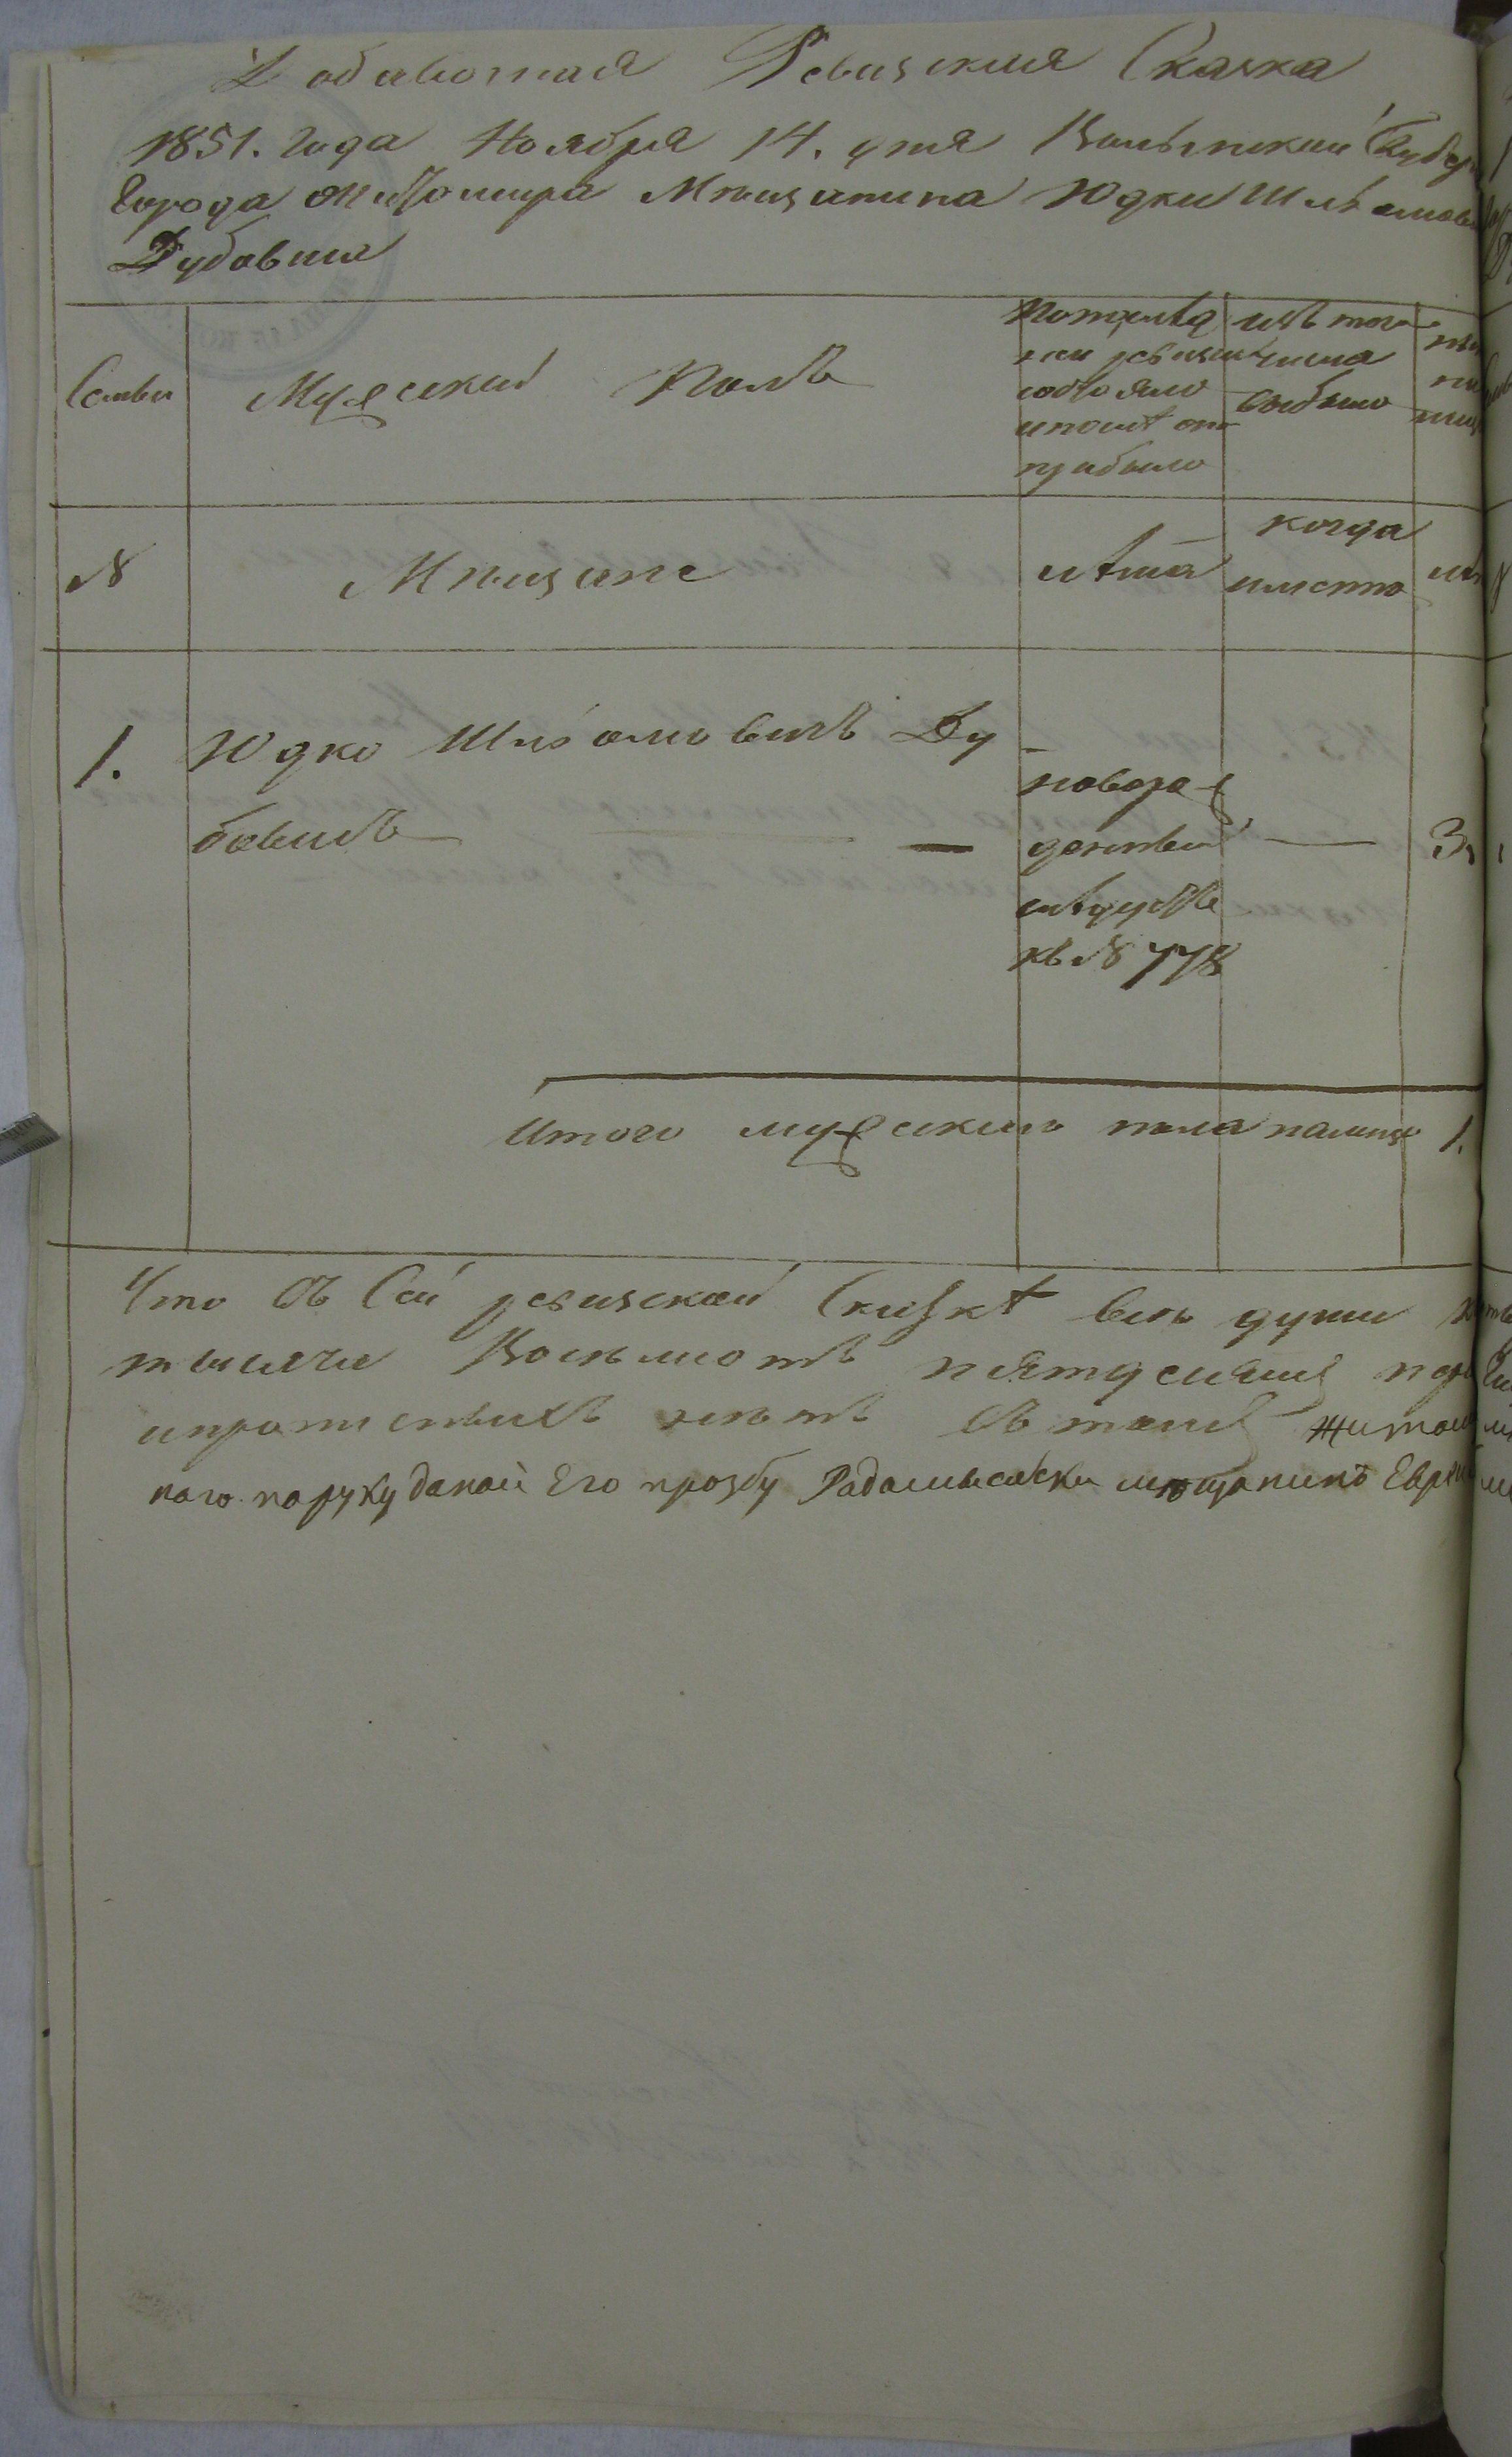 Добавочная Ревизская Сказка
1851. года Ноября 14. дня Волынский Губер
Города Житомира Мѣщанина Юдки Шлёмови
Дубовиса
Семьи
Мужеский Полъ
По послѣд
ней ревизии
состояло
и послѣ оно
прибыло
изъ того
числа
выбыло
№
Мѣщане
лѣта
когда
именно
1. Юдко Шлёмовичъ Ду-
бовисъ
новорож
денный
слѣдуетъ
къ № 778
3
Итого мужескаго пола налицо 1.
Что Въ Сей ревизской Сказкѣ всѣ души
тысяча Восемьсотъ пятдесятъ
и пропиcныхъ нѣтъ Въ томъ Житом
наго поруку данай Его прозбу Радомысльски мѣщанинъ Еврей